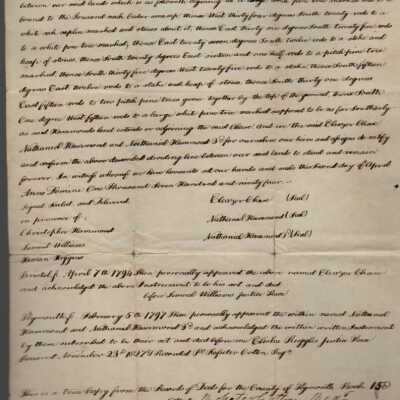 between our said lands which is as followeth
bound to the
thence West thirty four degrees South twenty rods to a
white ash saplin marked and stones about it, thence East thirty one degrees South twenty five rods
to a white pine tree marked, thence East twenty seven degrees South twelve rods to a stake and
heap of stones, thence South twenty degrees East sixteen and one half rods to a pitch pine tree
marked, thence South thirty five degrees West twenty five rods to a stake, thence South fifteen
degrees East twelve rods to a stake and heap of stones thence South thirty one degrees
East fifteen rods to two pitch pine trees grown together by the top of the ground, thence South
One degree West fifteen rods to a large white pine tree marked supposed to be as far Southerly
as said Hammonds land extends or adjoining the said Chase. And we the said Eleazer Chase
Nathaniel Hammond and Nathaniel Hammond 3d for ourselves our heirs and assigns do ratify
and confirm the above awarded dividing line between our said lands to stand and remain
forever. In witness whereof we have hereunto set our hands and seals this second day of April
Anno Domini One Thousand Seven Hundred and ninety four.
Signed Sealed and Delivered
Eleazer Chase (Seal)
in presence of
Nathaniel Hammond (Seal)
Christopher Hammond
Nathaniel Hammond 3d (Seal)
Lemuel Williams
Higgins
April 7th 1794 Then personally appeared the above named Eleazer Chase
and acknowledged the above Instrument to be his act and deed
before Lemuel Williams Justice Peace
Plymouth ss February 5th 1797 Then personally appeared the within named Nathaniel
Hammond and Nathaniel Hammond 3d and acknowledged the within written Instrument
by them subscribed to be their act and deed before me Elisha Ruggles Justice Peace
Received November 23d 1827 & Recorded Pr Rossiter Cotton Regr
This is a true copy from the Records of Deeds for the County of Plymouth Book 15